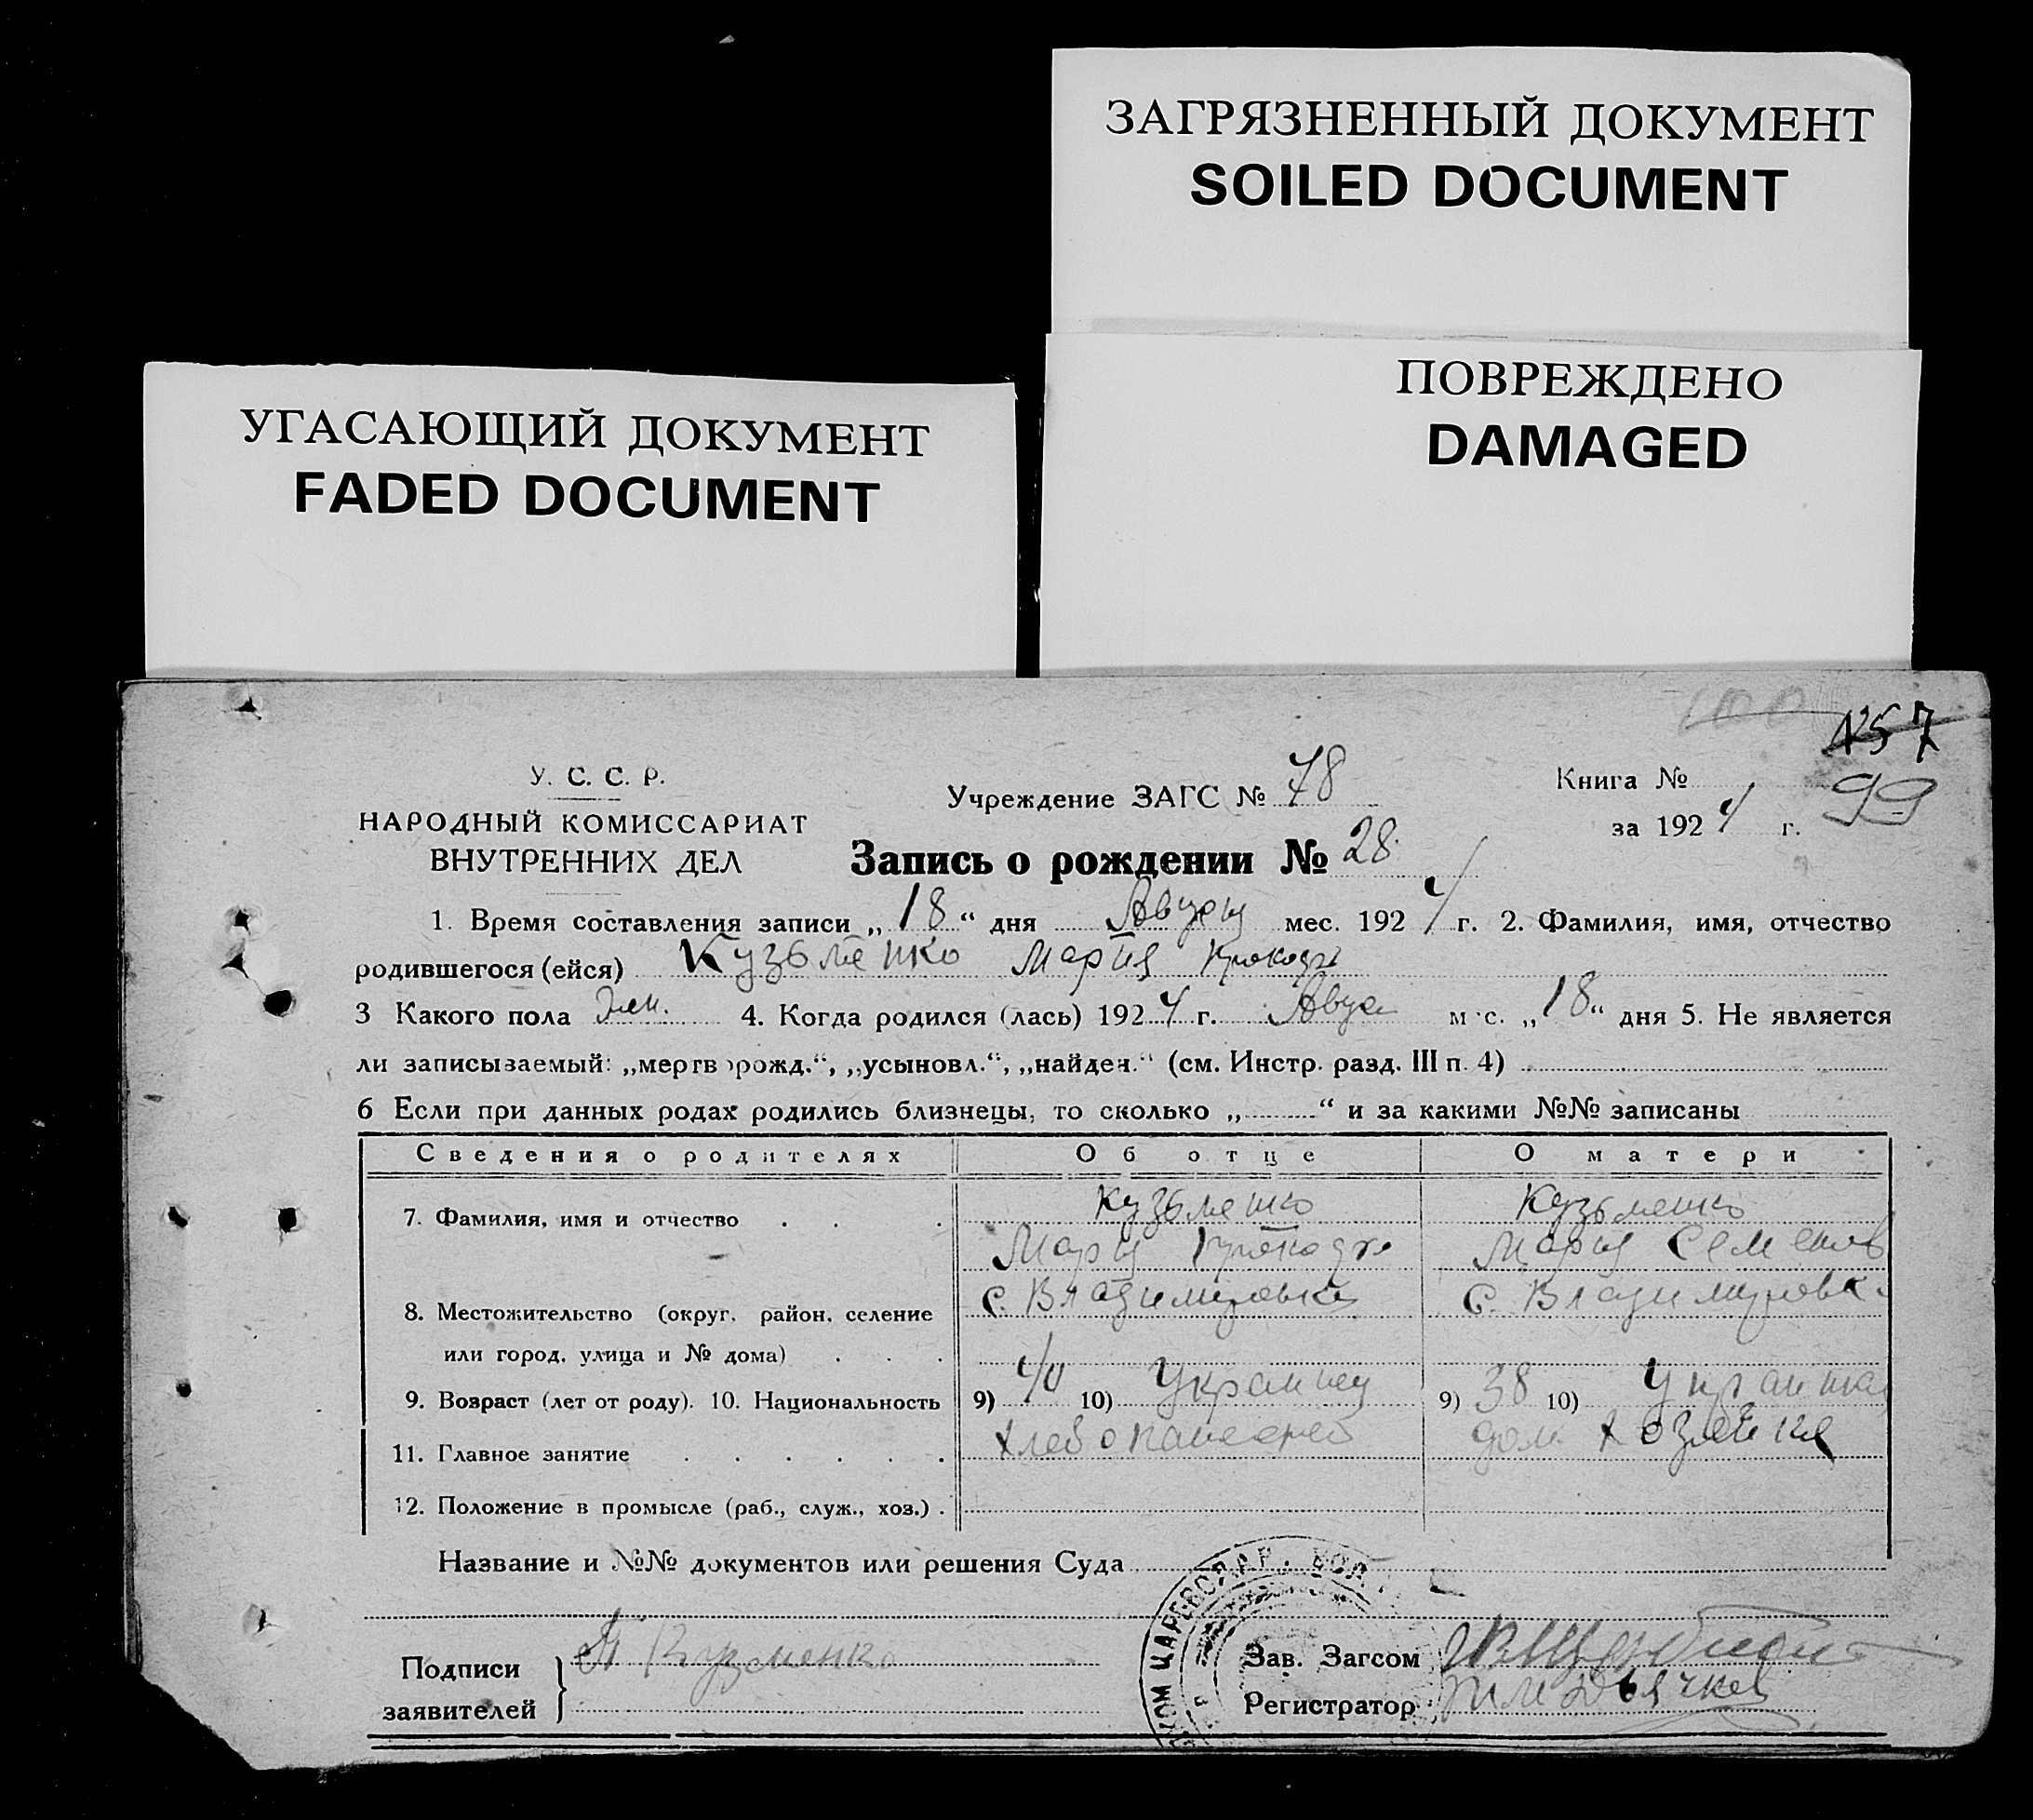 ЗАГРЯЗНЕННЫЙ ДОКУМЕНТ
SOILED DOCUMENT
ПОВРЕЖДЕНО
DAMAGED
УГАСАЮЩИЙ ДОКУМЕНТ
FADED DOCUMENT
100
7
У. С. С. Р.
НАРОДНЫЙ КОМИССАРИАТ
ВНУТРЕННИХ ДЕЛ
Учреждение ЗАГС № 78
Книга № 99
за 1924 г.
Запись о рождении № 28
1. Время составления записи „18“ дня мес. 1924 г. 2. Фамилия, имя, отчество
родившегося (ейся) Кузьменко Мария
3 Какого пола жен. 4. Когда родился (лась) 1924 г. Авгус м с. „18“ дня 5. Не является
ли записываемый: „мертворожд.“, „усыновл.“, „найден.“ (см. Инстр. разд. III п. 4)
6 Если при данных родах родились близнецы, то сколько „ “ и за какими №№ записаны
Сведения о родителях Об отце О матери
7. Фамилия, имя и отчество Кузьменко Кузьменко
Мария Семенов
8. Местожительство (округ, район, селение с. Владимировка с. Владимировка
или город, улица и № дома)
9. Возраст (лет от роду). 10. Национальность 9) 40 10) Украинец 9) 38 10) Украинка
11. Главное занятие дом хозяйка
12. Положение в промысле (раб., служ., хоз.)
Название и №№ документов или решения Суда
Подписи заявителей Кузменко
Зав. Загсом
Регистратор Дьячков